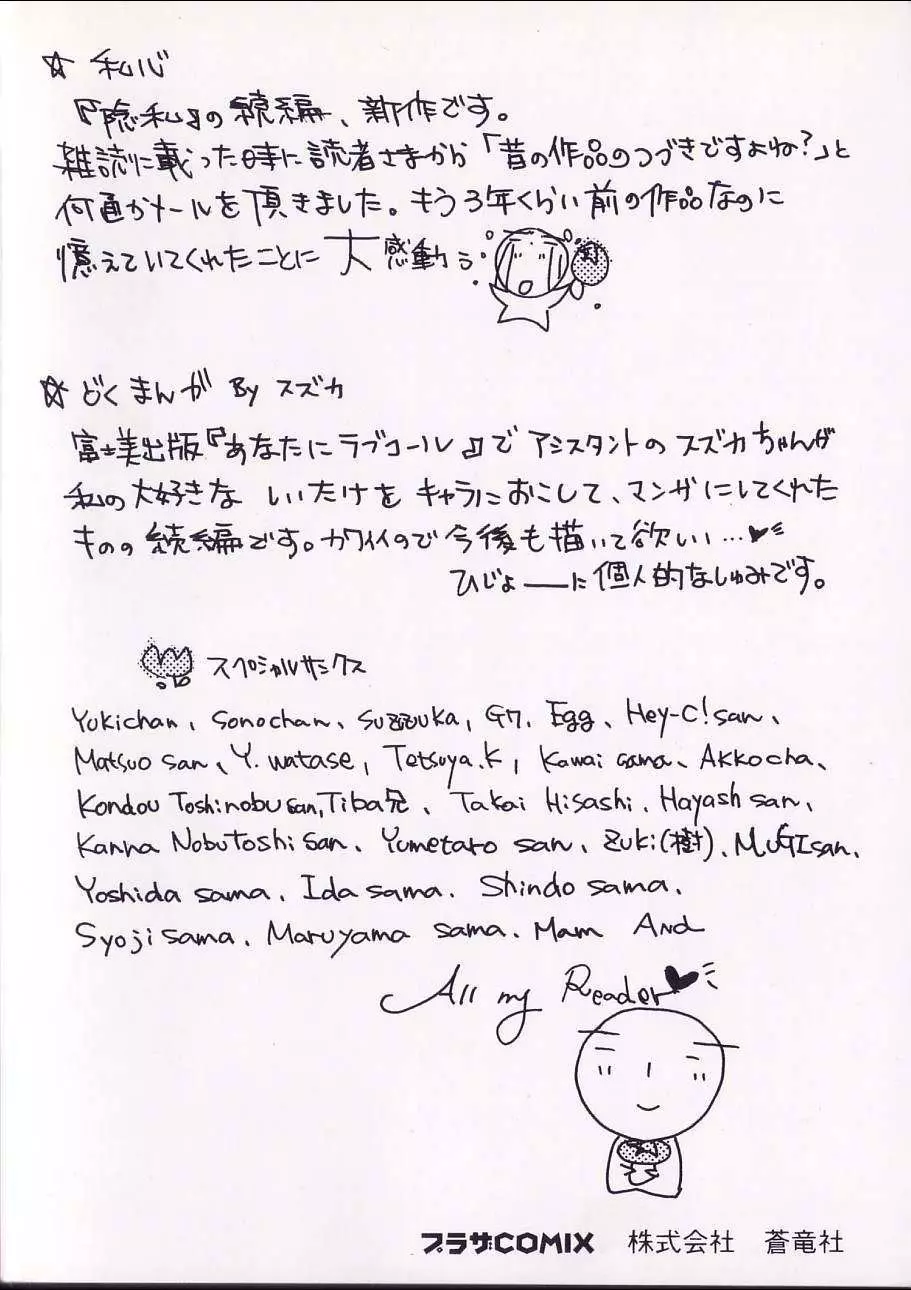 ☆ 私心
『隠私』の続編、新作です。
雑読に載った時に読者さまから「昔の作品のつづきですよね?」と
何通かメールを頂きました。もう3年くらい前の作品なのに
憶えていてくれたことに大感動う
☆ どくまんが By スズカ
富士美出版『あなたにラブコール』でアシスタントのスズカちゃんが
私の大好きな しいたけを キャラにおこして、マンガにしてくれた
ものの続編です。カワイイので今後も描いて欲しい…♥
ひじょーに個人的なしゅみです。
スペシャルサンクス
Yukichan、Sonochan、Suzzuka, G7. Egg、Hey-C! san、
Matsuo san、Y. watase, Tetsuya.K, Kawai sama、Akkocha、
Kondou Toshinobu san, Tiba兄、Takai Hisashi、Hayash san、
Kanna Nobutoshi san、Yumetaro san、Zuki(樹)、MUGI san、
Yoshida sama、Ida sama. Shindo sama、
Syoji sama、Maruyama sama、Mam And
All my Reader♥
プラザCOMIX 株式会社 蒼竜社